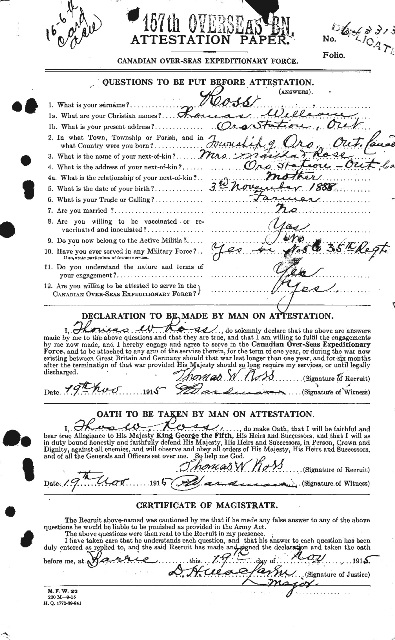 157th OVERSEAS BN.
ATTESTATION PAPER.
No.
DUPLICATE
Folio.
CANADIAN OVER-SEAS EXPEDITIONARY FORCE.
QUESTIONS TO BE PUT BEFORE ATTESTATION.
(ANSWERS).
1. What is your surname? Ross
1a. What are your Christian names? Thomas William
1b. What is your present address? Oro Station, Ont.
2. In what Town, Township or Parish, and in what Country were you born? Township of Oro, Ont. Canada
3. What is the name of your next-of-kin? Mrs. Ross
4. What is the address of your next-of-kin? Oro Station - Ont.
4a. What is the relationship of your next-of-kin? Mother
5. What is the date of your birth? 3rd November 1888
6. What is your Trade or Calling? Farmer
7. Are you married? No
8. Are you willing to be vaccinated or re-vaccinated and inoculated? Yes
9. Do you now belong to the Active Militia? No
10. Have you ever served in any Military Force? Yes in 35th Regt
If so, state particulars of former service.
11. Do you understand the nature and terms of your engagement? Yes
12. Are you willing to be attested to serve in the CANADIAN OVER-SEAS EXPEDITIONARY FORCE? Yes
DECLARATION TO BE MADE BY MAN ON ATTESTATION.
I, Thomas W Ross, do solemnly declare that the above are answers
made by me to the above questions and that they are true, and that I am willing to fulfil the engagements
by me now made, and I hereby engage and agree to serve in the Canadian Over-Seas Expeditionary
Force, and to be attached to any arm of the service therein, for the term of one year, or during the war now
existing between Great Britain and Germany should that war last longer than one year, and for six months
after the termination of that war provided His Majesty should so long require my services, or until legally
discharged.
Thomas W Ross (Signature of Recruit)
Date 19th Nov 1915 (Signature of Witness)
OATH TO BE TAKEN BY MAN ON ATTESTATION.
I, Thos W. Ross, do make Oath, that I will be faithful and
bear true Allegiance to His Majesty King George the Fifth, His Heirs and Successors, and that I will as
in duty bound honestly and faithfully defend His Majesty, His Heirs and Successors, in Person, Crown and
Dignity, against all enemies, and will observe and obey all orders of His Majesty, His Heirs and Successors,
and of all the Generals and Officers set over me. So help me God.
Thomas W Ross (Signature of Recruit)
Date 19th Nov 1915 (Signature of Witness)
CERTIFICATE OF MAGISTRATE.
The Recruit above-named was cautioned by me that if he made any false answer to any of the above
questions he would be liable to be punished as provided in the Army Act.
The above questions were then read to the Recruit in my presence.
I have taken care that he understands each question, and that his answer to each question has been
duly entered as replied to, and the said Recruit has made and signed the declaration and taken the oath
before me, at Barrie this 19th day of Nov 1915
(Signature of Justice)
Major
M. F. W. 23
200 M—9-15
H. Q. 1772-39-841